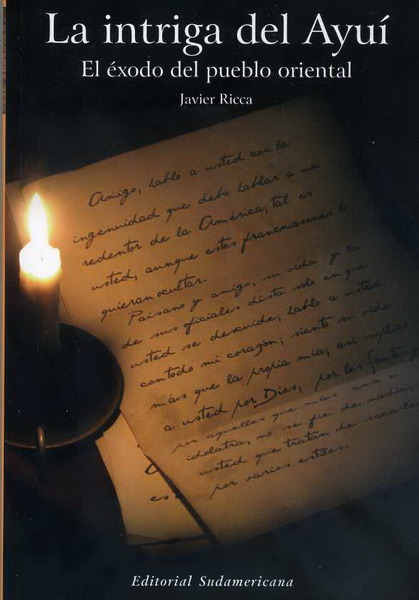 La intriga del Ayuí
El éxodo del pueblo oriental
Javier Ricca
Amigo, hablo a usted con la
ingenuidad que debo hablar a un
redentor de la América; tal es
usted, aunque estos francmasones lo
quieran ocultar.
Paisano y amigo, su vida y la
de sus oficiales dista solo en que
usted se descuide; hablo a usted
con todo mi corazón; siento su vida
más que la propia mía; así suplico
a usted por Dios, por los Santos
por aquellas que más ama e
idolatra, no se fíe de nadie,
usted que tratan de sacarle
por varios estilos.
Editorial Sudamericana